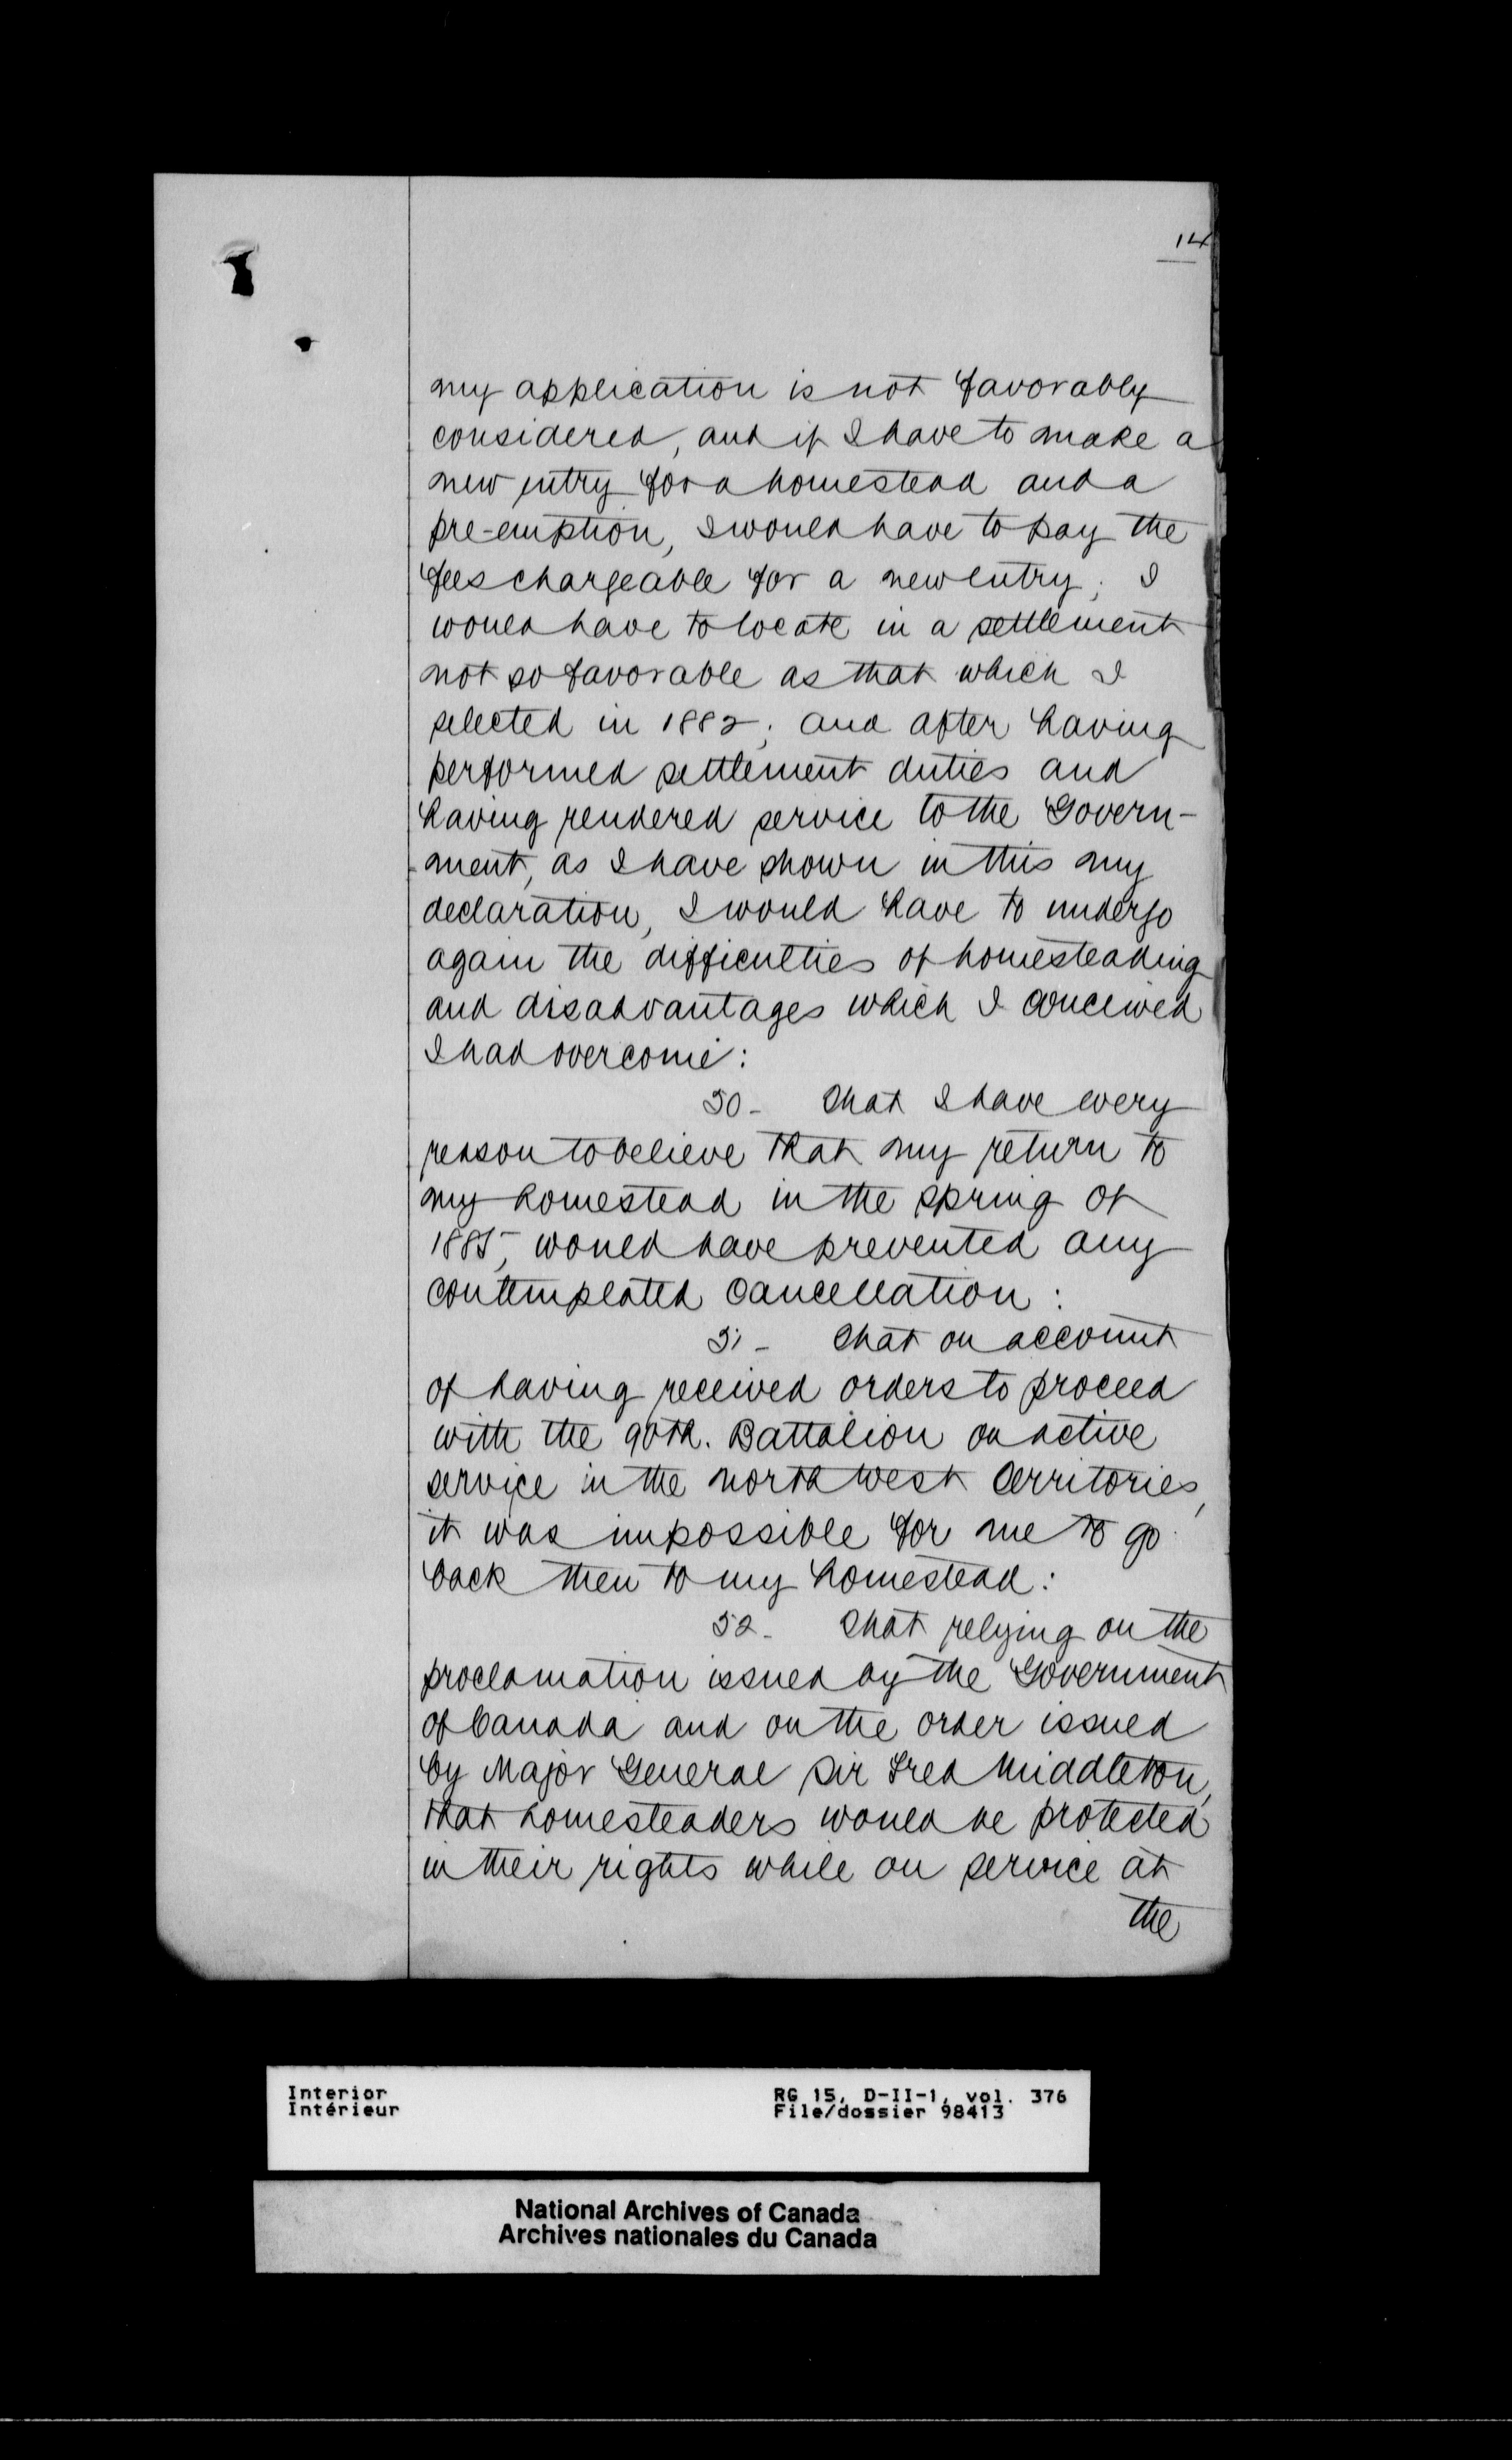 14
my application is not favorably
considered, and if I have to make a
new entry for a homestead and a
pre-emption, I would have to pay the
fees chargeable for a new entry; I
would have to locate in a settlement
not so favorable as that which I
selected in 1882; and after having
performed settlement duties and
having rendered service to the Govern-
-ment, as I have shown in this my
declaration, I would have to undergo
again the difficulties of homesteading
and disadvantages which I conceived
I had overcome:
50- That I have every
reason to believe that my return to
my homestead in the spring of
1885, would have prevented any
contemplated cancellation:
51- That on account
of having received orders to proceed
with the 90th. Battalion on active
service in the North West Territories,
it was impossible for me to go
back then to my homestead:
52- That relying on the
proclamation issued by the Government
of Canada and on the order issued
by Major General Sir Fred Middleton,
that homesteaders would be protected
in their rights while on service at
the
Interior RG 15, D-II-1, vol. 376
Intérieur File/dossier 98413
National Archives of Canada
Archives nationales du Canada